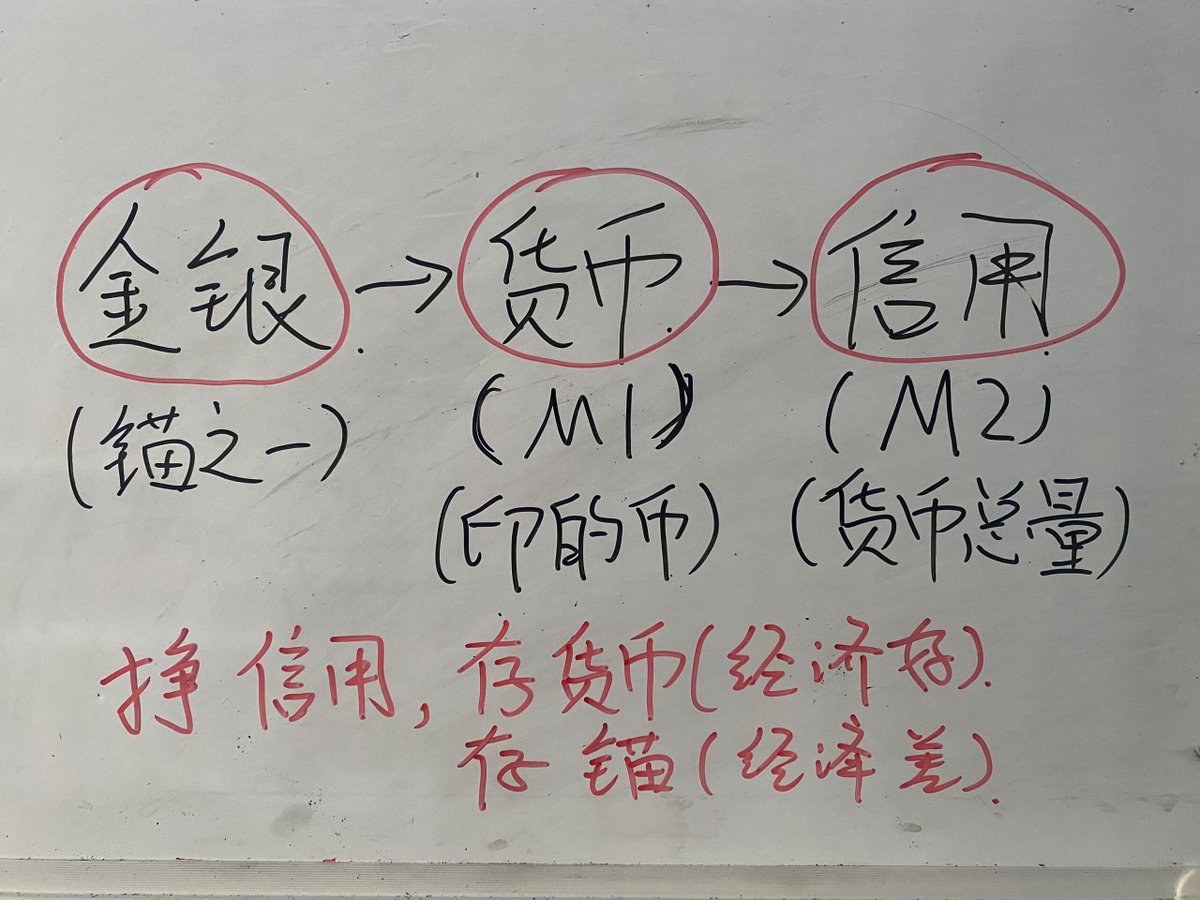 金银 → 货币 → 信用
(锚之一) (M1) (M2)
(印的币) (货币总量)
挣信用, 存货币(经济好).
存锚(经济差).